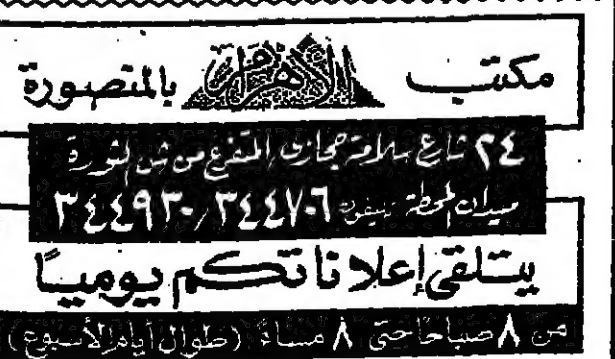 مكتب الأهرام بالمنصورة
٢٤ شارع سلامة حجازى المتفرع من ش الثورة
ميدان المحطة تليفون ٣٤٤٧٠٦ / ٣٤٤٩٣٠
يتلقى إعلاناتكم يوميًا
من ٨ صباحًا حتى ٨ مساءً (طوال أيام الأسبوع)